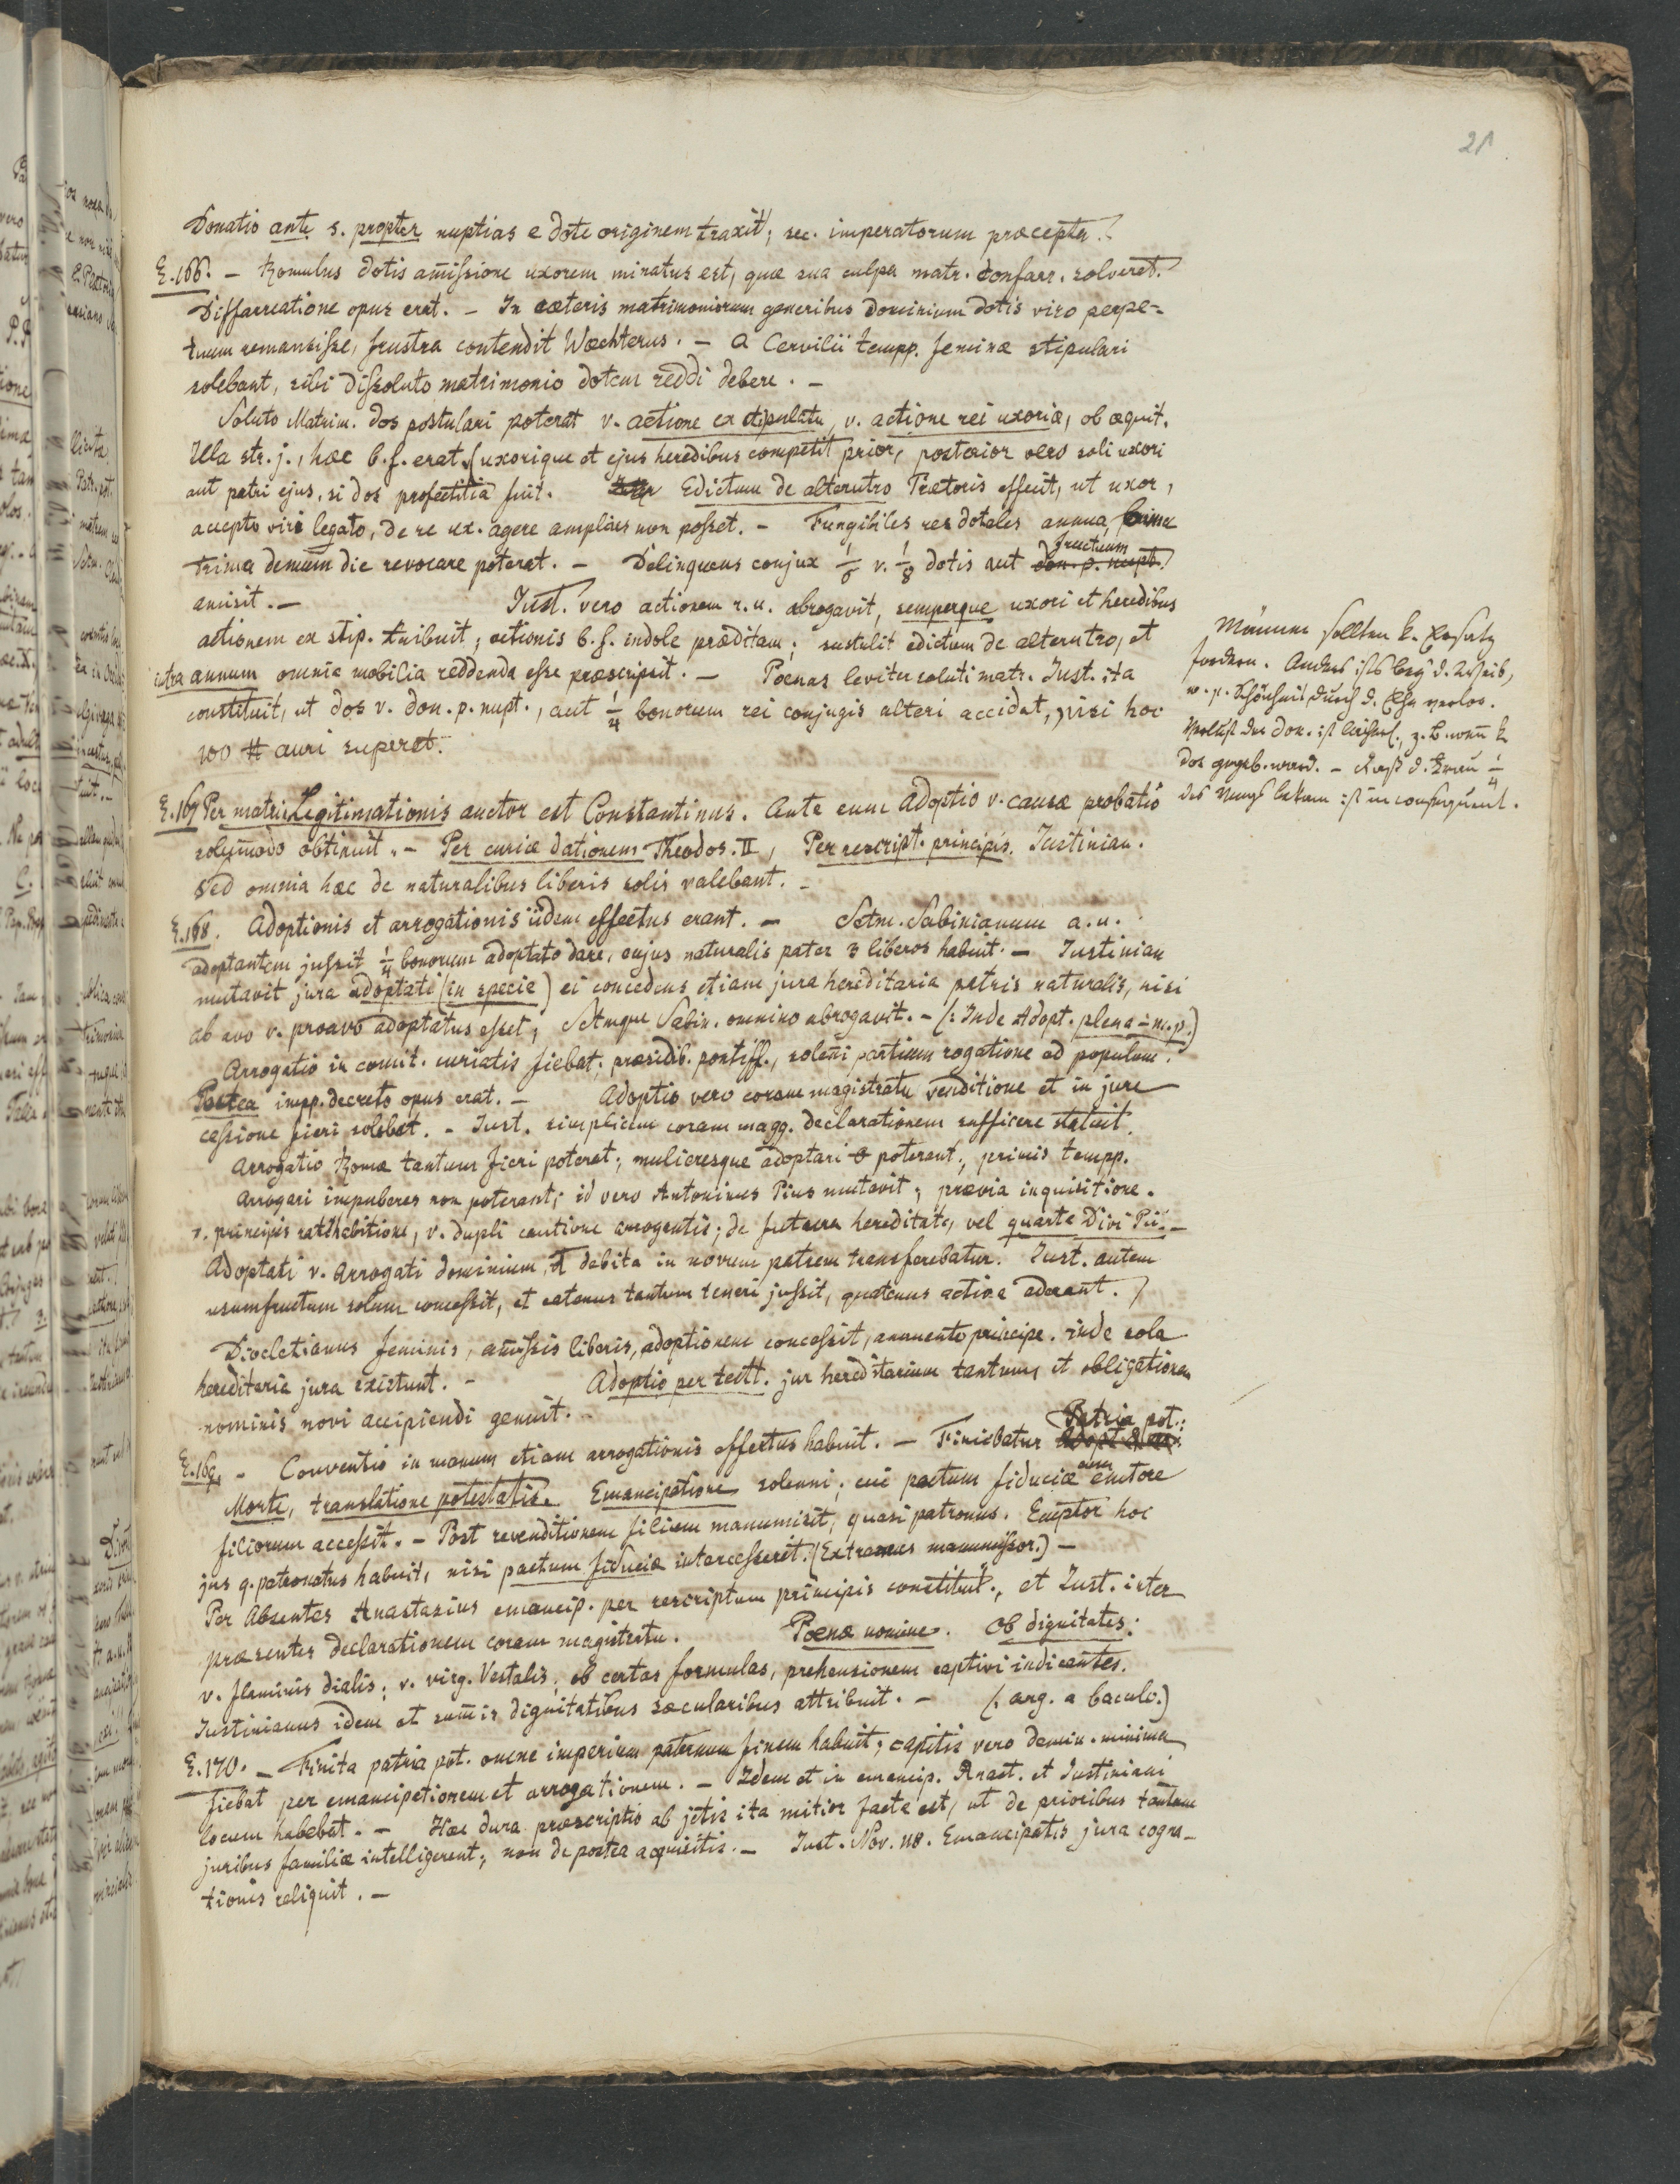 21
Donatio ante s. propter nuptias e dote originem traxit, sec. imperatorum præcepta.
§.166. – Romulus dotis amissione uxorem minatus est, quæ sua culpa matr. confarr. solveret.
Diffarreatione opus erat. – In cæteris matrimoniorum generibus dominium dotis viro perpe-
tuum remansisse, frustra contendit Wæchterus. – A Cervilii tempp. feminæ stipulari
solebant, sibi dissoluto matrimonio dotem reddi debere. –
Soluto Matrim. dos postulari poterat v. actione ex stipulatu, v. actione rei uxoriæ, ob æquit.
Illa str. j., hæc b. f. erat, (uxorique et ejus heredibus competit prior, posterior vero soli uxori
aut patri ejus, si dos profectitia fuit. Edictum de alterutro Prætoris effecit, ut uxor,
accepto viri legato, de re ux. agere amplius non posset. – Fungibiles res dotales annua, bima
trima demum die revocare poterat. – Delinquens conjux 1/6 v. 1/8 dotis aut don. p. nupt.
fructuum
amisit. – Just. vero actionem r. u. abrogavit, semperque uxori et heredibus
actionem ex stip. tribuit, actionis b. f. indole præditam; sustulit edictum de alterutro, et
intra annum omnia mobilia reddenda esse præscripsit. – Poenas leviter soluti matr. Just. ita
constituit, ut dos v. don. p. nupt., aut 1/4 bonorum rei conjugis alteri accidat, nisi hoc
100 ℔ auri superat.
Männer sollten k. Ersatz
fordern. Anders ists bey d. Weib,
w. p. Schönheit durch d. Ehe verlor.
Verlust der don. ist
dos gegeb. ward. – d. Frau 1/4
des bekam ist inconsequent.
§.167 Per matri. Legitimationis auctor est Constantinus. Ante eum adoptio v. causæ probatio
solummodo obtinuit. – Per curiæ dationem Theodos. II, Per rescript. principis. Justinian.
Sed omnia hæc de naturalibus liberis solis valebant. –
§.168. Adoptionis et arrogationis iidem effectus erant. – Sctm. Sabinianum a. u.
adoptantem jussit 1/4 bonorum adoptato dare, cujus naturalis pater 3 liberos habuit. – Justinian
mutavit jura adoptati (in specie) ei concedens etiam jura hereditaria patris naturalis, nisi
ab avo v. proavo adoptatus esset, Sctmque Sabin. omnino abrogavit. – (: Inde Adopt. plena – m. p.)
Arrogatio in comit. curiatis fiebat, præsidib. pontiff., solenni partium rogatione ad populum.
Postea impp. decreto opus erat. – Adoptio vero coram magistratu venditione et in jure
cessione fieri solebat. – Just. simplicem coram magg. declarationem sufficere statuit.
Arrogatio Romæ tantum fieri poterat, mulieresque adoptari poterant, primis tempp.
Arrogari impuberes non poterant; id vero Antoninus Pius mutavit, prævia inquisitione.
v. principis ratihabitione, v. dupli cautione arrogantis; de futura hereditate, vel quarta Divi Pii. –
Adoptati v. Arrogati dominium, et debita in novum patrem transferebatur. Just. autem
usumfructum solum concessit, et eatenus tantum teneri jussit, quatenus activa aderant.
Diocletianus feminis, amissis liberis, adoptionem concessit, annuente principe. inde sola
hereditaria jura existunt. – Adoptio per testt. jur hereditarium tantum, et obligationem
nominis novi accipiendi genuit. –
§.169. – Conventio in manum etiam arrogationis effectus habuit. – Finiebatur Patria pot.:
Morte, translatione potestatis. Emancipatione solenni, cui pactum fiduciæ cum emtore
filiorum accessit. – Post revenditionem filium manumisit, quasi patronus. Emptor hoc
jus q. patronatus habuit, nisi pactum fiduciæ intercesserit. (Extraneus manumissor.) –
Per Absentes Anastasius emancip. per rescriptum principis constituit., et Just. inter
præsentes declarationem coram magistratu. Poenæ nomine. Ob dignitates:
v. flaminis dialis, v. virg. Vestalis, ob certas formulas, prehensionem captivi indicantes.
Justinianus idem et summis dignitatibus sæcularibus attribuit. – (: arg. a baculo.)
§.170. – Finita patria pot. omne imperium paternum finem habuit, capitis vero demin. minima
fiebat per emancipationem et arrogationem. – Idem et in emancip. Anast. et Justiniani
locum habebat. – Hæc dura præscriptio ab jctis ita mitior facta est, ut de prioribus tantum
juribus familiæ intelligerent, non de postea acquisitis. – Just. Nov. 118. Emancipatis jura cogna-
tionis reliquit. –